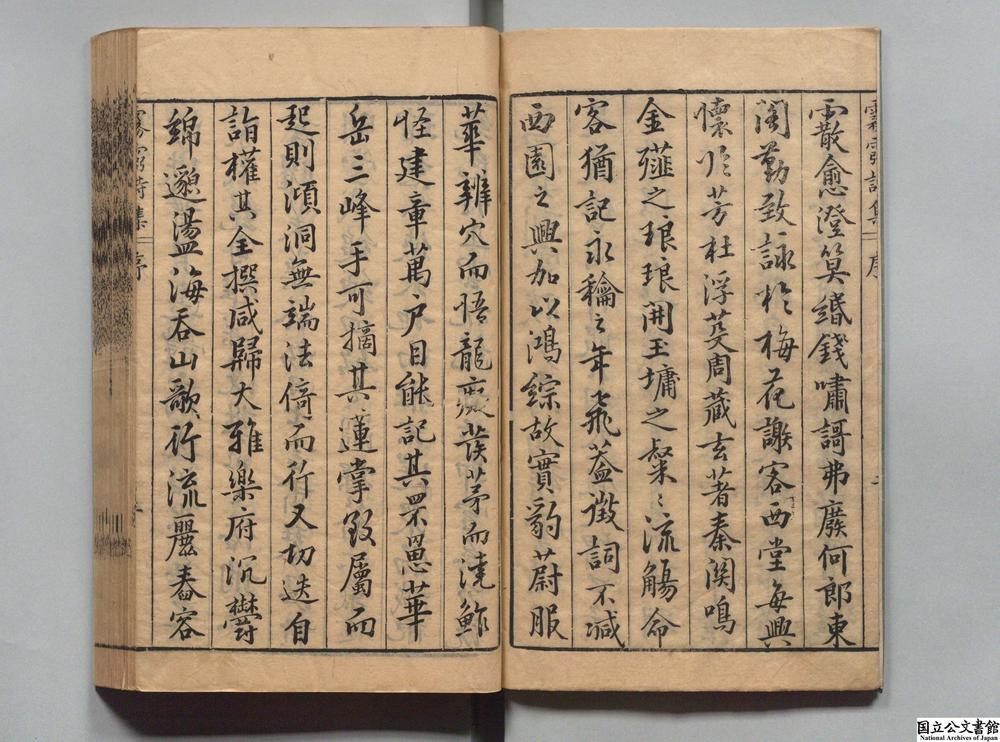 霰愈澄算緡錢嘯謌弗廢何郎東
閣勤致詠於梅花謝客西堂每興
懷於芳杜浮芰周藏玄著秦関鳴
金薤之琅琅開玉墉之粲〻流觴命
客猶記永龢之年飛蓋徵詞不減
西園之興加以鴻綜故實豹蔚服
華辨穴而悟龍癡茅而澆鮓
怪建章萬户目能記其罘罳華
岳三峰手可摘其蓮掌致屬而
起則澒洞無端法倚而行又切迭自
詣權其全撰咸歸大雅樂府沉欝
綿邈盪海吞山歌行流麗春容
詩集
序
国立公文書館
National Archives of Japan